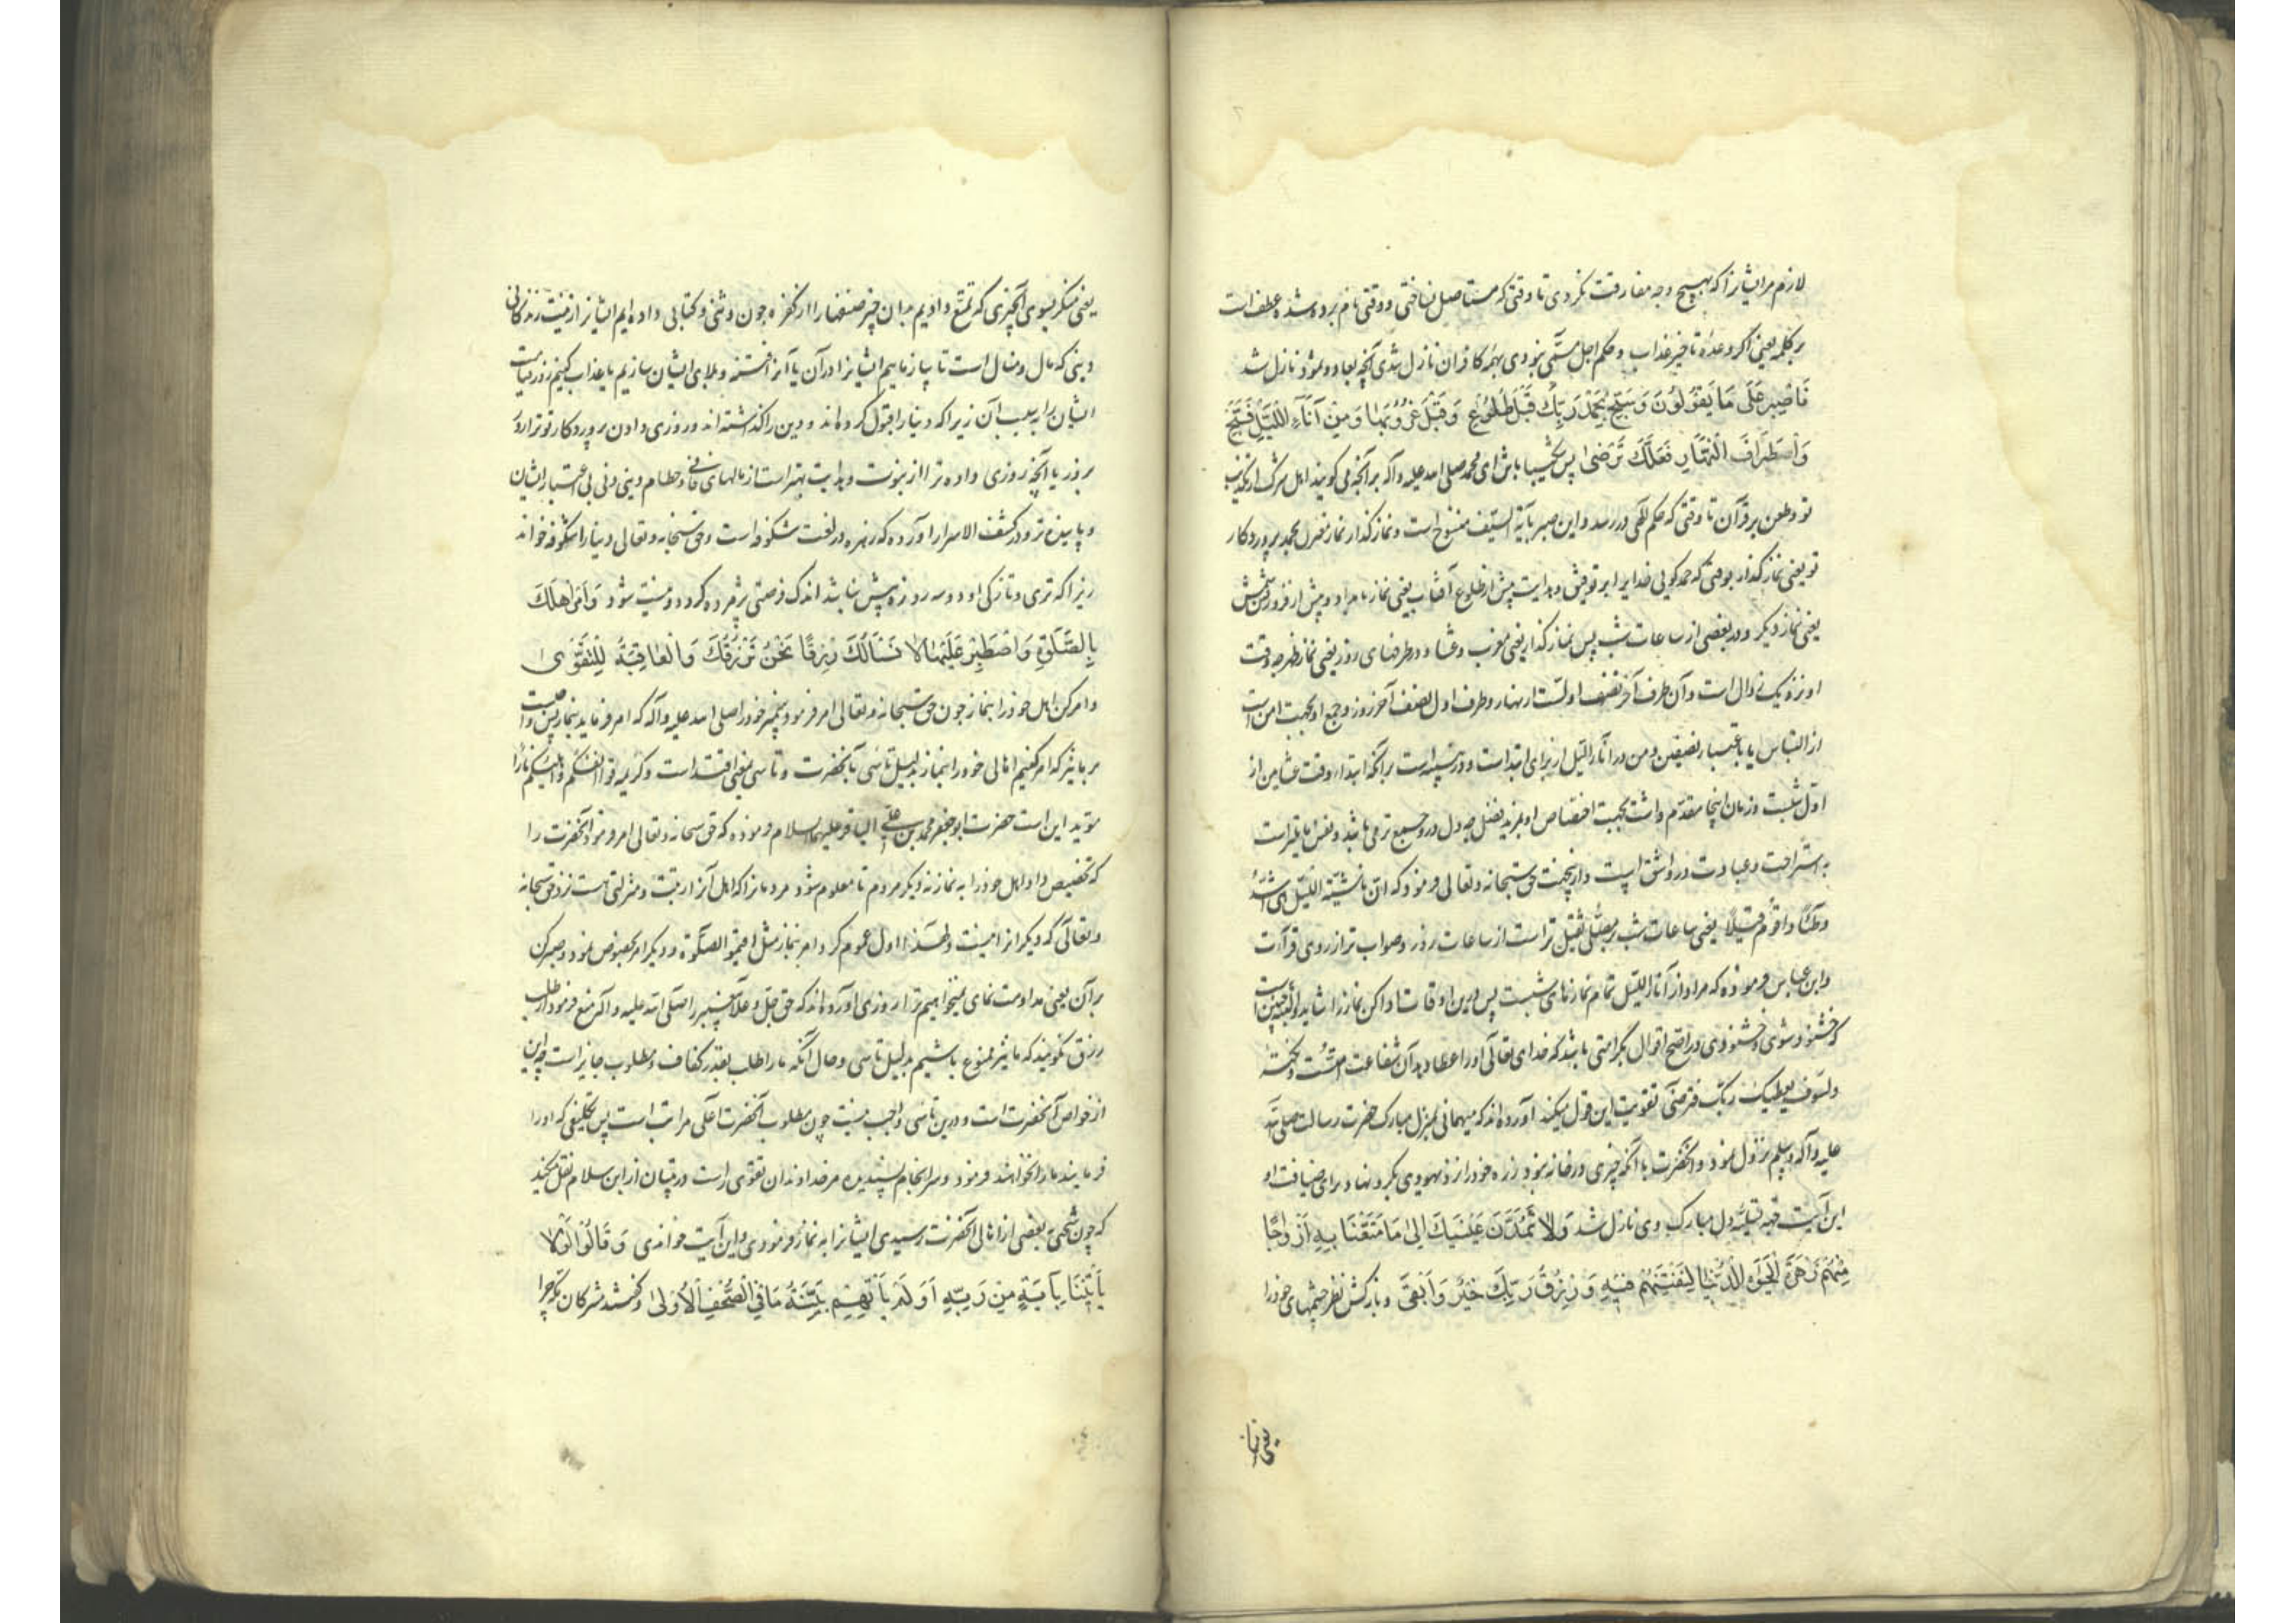 لازم مر ایشانرا که بهیچ وجه مفارقت نکردی تا وقتی که مستاصل ساختی و وقتی نام برده شده عطف است
بر کلمه یعنی اکر وعدهٔ تاخیر عذاب و حکم اجل مسمّی نبودی بهمه کافران نازل شدی آنچه بعاد و ثمود نازل شد
فَاصْبِرْ عَلَى مَا يَقُولُونَ وَسَبِّحْ بِحَمْدِ رَبِّكَ قَبْلَ طُلُوعِ وَقَبْلَ غُرُوبِهَا وَمِنْ آنَاءِ اللَّيْلِ فَسَبِّحْ
وَاَطْرَافَ النَّهَارِ لَعَلَّكَ تَرْضَى پس شکیبا باش ای محمد صلی الله علیه و آله بر آنچه می کویند اهل شرک از تکذیب
تو و طعن بر قرآن تا وقتی که حکم الهی در رسد و این صبر بآیة السیف منسوخ است و نماز کذار نماز مقرن بحمد پروردکار
تو یعنی نماز کذار بوقتی که حمد کویی خدایرا بر توفیق و هدایت پیش از طلوع آفتاب یعنی نماز بامداد و پیش از فرو رفتنش
یعنی نماز دیکر و در بعضی از ساعات شب پس نماز کذار یعنی مغرب و عشا و در طرفهای روز یعنی نماز ظهر چه وقت
او نزدیک زوال است و آن طرف آخر نصف اولست از نهار و طرف اول نصف آخر روز و جمع او بجهت امن است
از التباس یا باعتبار نصفین و من در آناء اللیل از برای ابتداست
اوّل شبست و زمان اینجا مقدّم داشت بجهت اختصاص او بمزید فضل چه دل درو جمیع تر می باشد و نفس مایلتر است
به استراحت و عبادت درو اشق است و ازینجهت حق سبحانه و تعالی فرمود که انّ ناشئة اللیل هی اشدّ
وطئا و اقوم قیلا یعنی ساعات شب ثقیل تر است از ساعات روز و صواب تر از روی قرآءت
و ابن عباس فرموده که مراد از آناء اللیل تمام نمازهای شبست پس درین اوقات ادا کن نماز را شاید
که خشنود شوی و خشنودی در اصح اقوال بکرامتی باشد که خدای تعالی او را عطا دهد آن شفاعت امّتست و نکتهٔ
ولسوف یعطیک ربّک فترضی تقویت این قول میکند آورده اند که میهمانی بمنزل مبارک حضرت رسالت صلی الله
علیه و آله و سلم نزول نمود و آنحضرت با آنکه چیزی در خانه نبود زره خود را نزد یهودی بکرو نهاد برای ضیافت او
این آیت جهة تسلیّهٔ دل مبارک وی نازل شد وَلَا تَمُدَّنَّ عَيْنَيْكَ اِلَى مَا مَتَّعْنَا بِهِ اَزْوَاجًا
مِنْهُمْ زَهْرَةَ الْحَيَوةِ الدُّنْيَا لِنَفْتِنَهُمْ فِيهِ وَرِزْقُ رَبِّكَ خَيْرٌ وَاَبْقَى و باز کش نظر چشمهای خود را
یعنی منکر بسوی آنچیزی که تمتّع دادیم بدان چیز صنفها را از کفره چون وثنی و کتابی داده ایم ایشانرا زینت زندکانی
دینی که مال و منال است تا بیازماییم ایشانرا در آن یا آنرا فتنه و بلای ایشان سازیم یا عذاب کنیم روز قیامت
ایشان را بسبب آن زیرا که دنیا را قبول کرده اند و دین را کذاشته اند و روزی دادن پروردکار تو ترا روز
بروز یا آنچه روزی داده ترا از نبوت و هدایت بهتر است از مالهای فانی و حطام دینی دنی بی اعتبار ایشان
و پاینده تر و در کشف الاسرار آورده که زهره در لغت شکوفه است و حق سبحانه و تعالی دنیا را شکوفه خواند
زیرا که تری و تازکی او دو سه روزه بیش نباشد اندک فرصتی پژمرده کردد و نیست شود وَأْمُرْ اَهْلَكَ
بِالصَّلَوةِ وَاصْطَبِرْ عَلَيْهَا لَا نَسْاَلُكَ رِزْقًا نَحْنُ نَرْزُقُكَ وَالْعَاقِبَةُ لِلتَّقْوَى
و امر کن اهل خود را بنماز چون حق سبحانه و تعالی امر فرمود پیغمبر خود را صلی الله علیه و آله که امر فرماید بنماز پس واجبست
بر ما نیز که امر کنیم اهالی خود را بنماز بدلیل تاسی بآنحضرت و تاسی بمعنی اقتداست و کریمه قوا انفسکم و اهلیکم نارا
مؤید این است حضرت ابو جعفر محمد بن علی الباقر علیهما السلام فرموده که حق سبحانه و تعالی امر فرمود آنحضرت را
که تخصیص داد اهل خود را به نماز نه دیکر مردم تا معلوم شود مردمانرا که اهل آنرا رتبت و منزلتی هست نزد حق سبحانه
و تعالی که دیکرانرا نیست و لهذا اول عموم کرد امر بنماز مثل اقیموا الصلوة و دیکر امر بخصوص نمود و صبر کن
بر آن یعنی مداومت نمای نمیخواهیم ترا روزی آورده اند که حق جلّ و علا پیغمبر را صلی الله علیه و آله منع فرمود از طلب
رزق نکویند که ما نیز ممنوع باشیم بدلیل تاسی و حال آنکه ما را طلب بقدر کفاف مطلوب و جایز است چه این
از خواص آنحضرت است و درین تاسی واجب نیست چون مطلوب آنحضرت اعلی مراتب است پس تکلیفی که او را
فرمایند ما را نخواهند فرمود و سرانجام پسندیده مر خداوندان تقوی راست در تبیان از ابن سلام نقل میکند
که چون سختیی ببعضی از اهالی آنحضرت رسیدی ایشانرا به نماز فرمودی و این آیت خواندی وَقَالُوا لَوْلَا
يَأْتِينَا بِآيَةٍ مِنْ رَبِّهِ اَوَلَمْ تَأْتِهِمْ بَيِّنَةُ مَا فِي الصُّحُفِ الْاُولَى و کفتند مشرکان مکه چرا